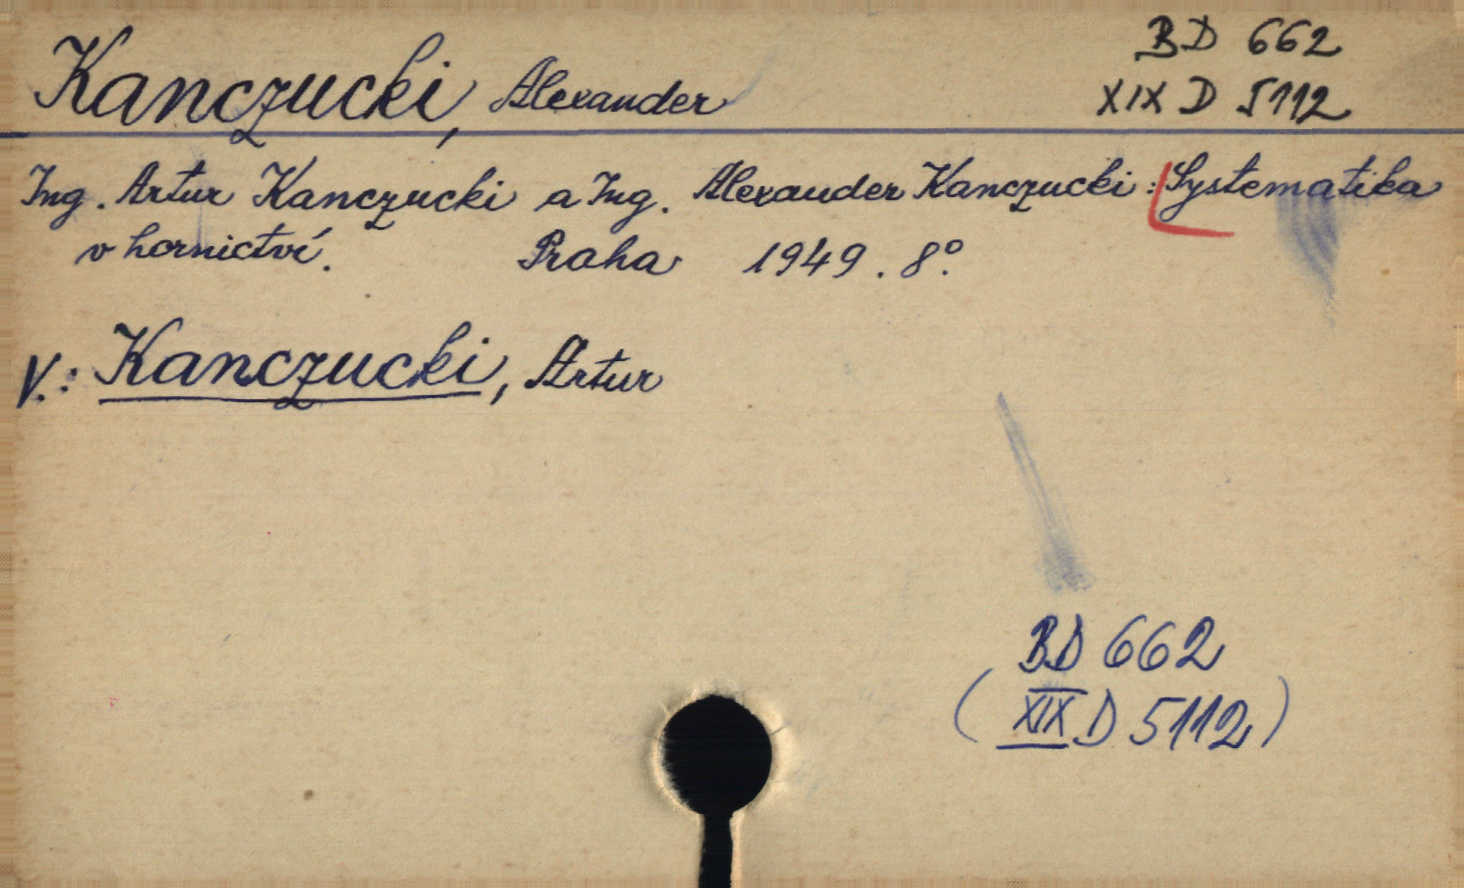 Kanczucki, Alexander
BD 662
XIX D 5112
Ing. Artur Kanczucki a Ing. Alexander Kanczucki: Systematika
v hornictví. Praha 1949. 8°.
V.: Kanczucki, Artur
BD 662
(XIX D 5112)